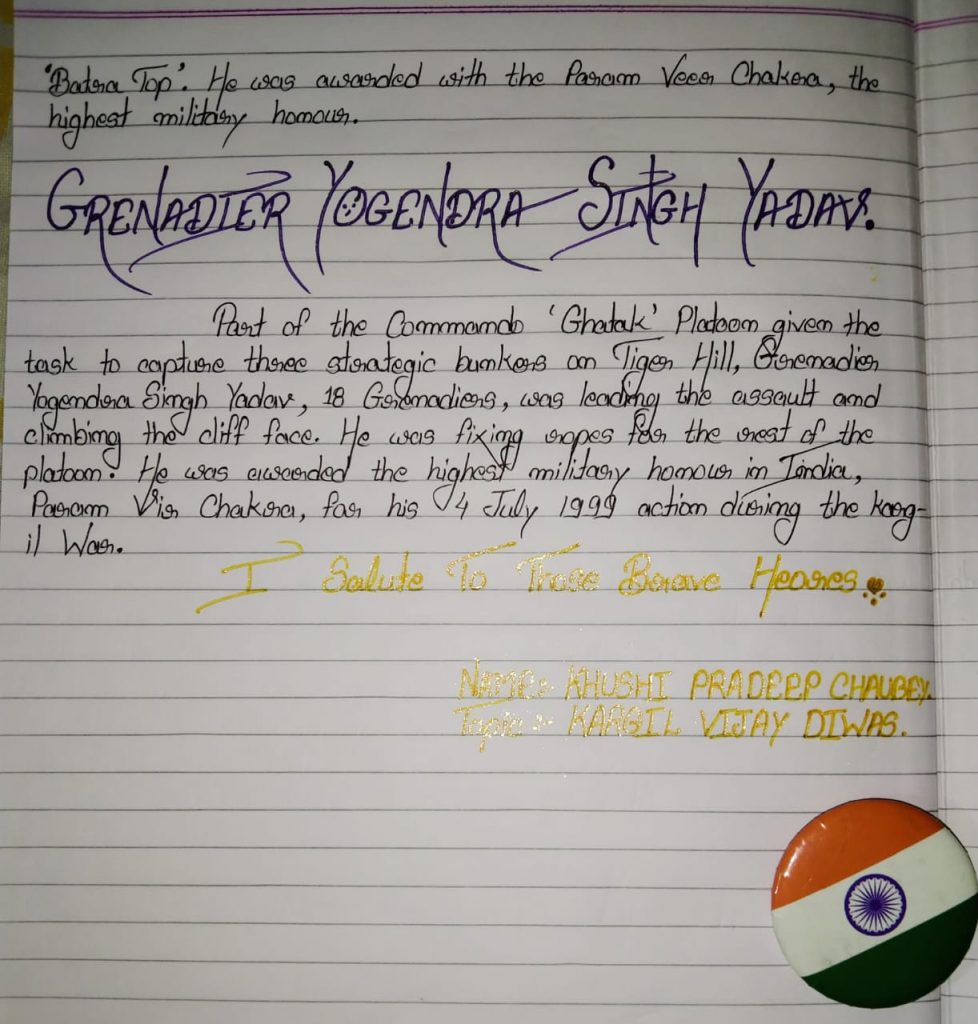 'Batra Top'. He was awarded with the Param Veer Chakra, the
highest military honour.
GRENADIER YOGENDRA SINGH YADAV.
Part of the Commando 'Ghatak' Platoon given the
task to capture three strategic bunkers on Tiger Hill, Grenadier
Yogendra Singh Yadav, 18 Grenadiers, was leading the assault and
climbing the cliff face. He was fixing ropes for the rest of the
platoon. He was awarded the highest military honour in India,
Param Vir Chakra, for his 4 July 1999 action during the Karg-
il War.
I Salute To Those Brave Heores
NAME:- KHUSHI PRADEEP CHAUBEY.
Topic :- KARGIL VIJAY DIWAS.